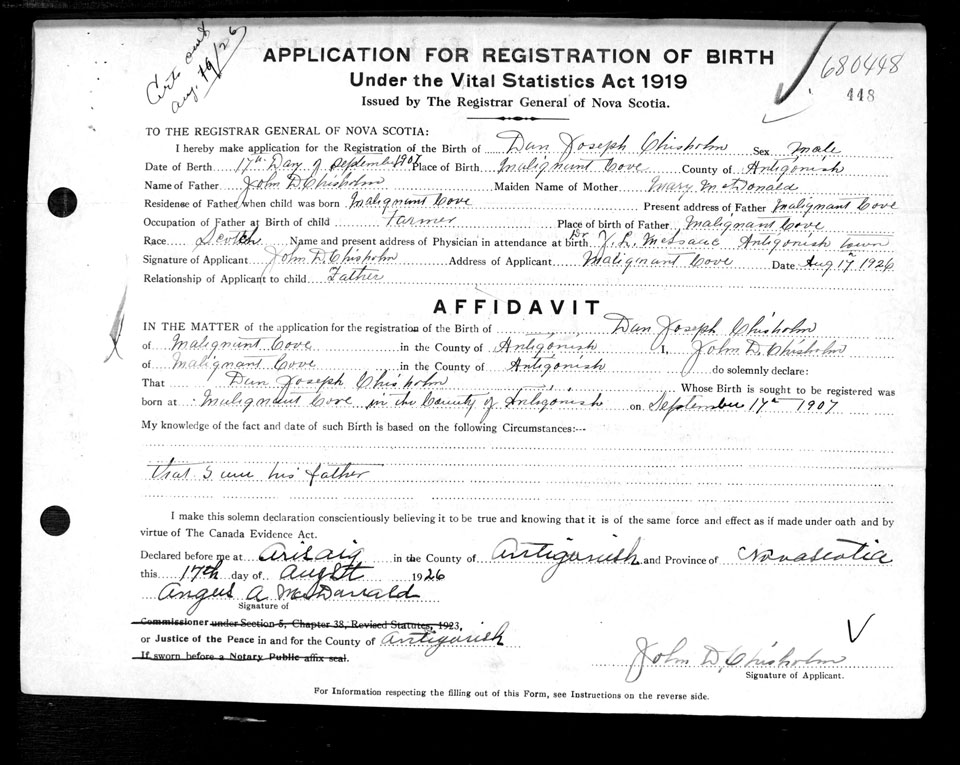 Aug. 19/26
APPLICATION FOR REGISTRATION OF BIRTH
680448
Under the Vital Statistics Act 1919
448
Issued by The Registrar General of Nova Scotia.
TO THE REGISTRAR GENERAL OF NOVA SCOTIA:
I hereby make application for the Registration of the Birth of Dan Joseph Chisholm Sex Male
Date of Birth 17th Day of September 1907 Place of Birth Malignant Cove County of Antigonish
Name of Father John D. Chisholm Maiden Name of Mother Mary McDonald
Residense of Father when child was born Malignant Cove Present address of Father Malignant Cove
Occupation of Father at Birth of child Farmer Place of birth of Father Malignant Cove
Race Scotch Name and present address of Physician in attendance at birth Dr J. L. Antigonish Town
Signature of Applicant John D. Chisholm Address of Applicant Malignant Cove Date Aug 17th 1926
Relationship of Applicant to child Father
AFFIDAVIT
IN THE MATTER of the application for the registration of the Birth of Dan Joseph Chisholm
of Malignant Cove in the County of Antigonish I, John D. Chisholm
of Malignant Cove in the County of Antigonish do solemnly declare:
That Dan Joseph Chisholm Whose Birth is sought to be registered was
born at Malignant Cove in the County of Antigonish on September 17th 1907
My knowledge of the fact and date of such Birth is based on the following Circumstances:--
that I am his father
I make this solemn declaration conscientiously believing it to be true and knowing that it is of the same force and effect as if made under oath and by
virtue of The Canada Evidence Act.
Declared before me at Arisaig in the County of Antigonish and Province of Nova Scotia
this 17th day of Augst 1926
Angus A McDonald
Signature of
Commissioner under Section 5, Chapter 38, Revised Statutes, 1923,
or Justice of the Peace in and for the County of Antigonish
If sworn before a Notary Public affix seal.
John D. Chisholm
Signature of Applicant.
For Information respecting the filling out of this Form, see Instructions on the reverse side.